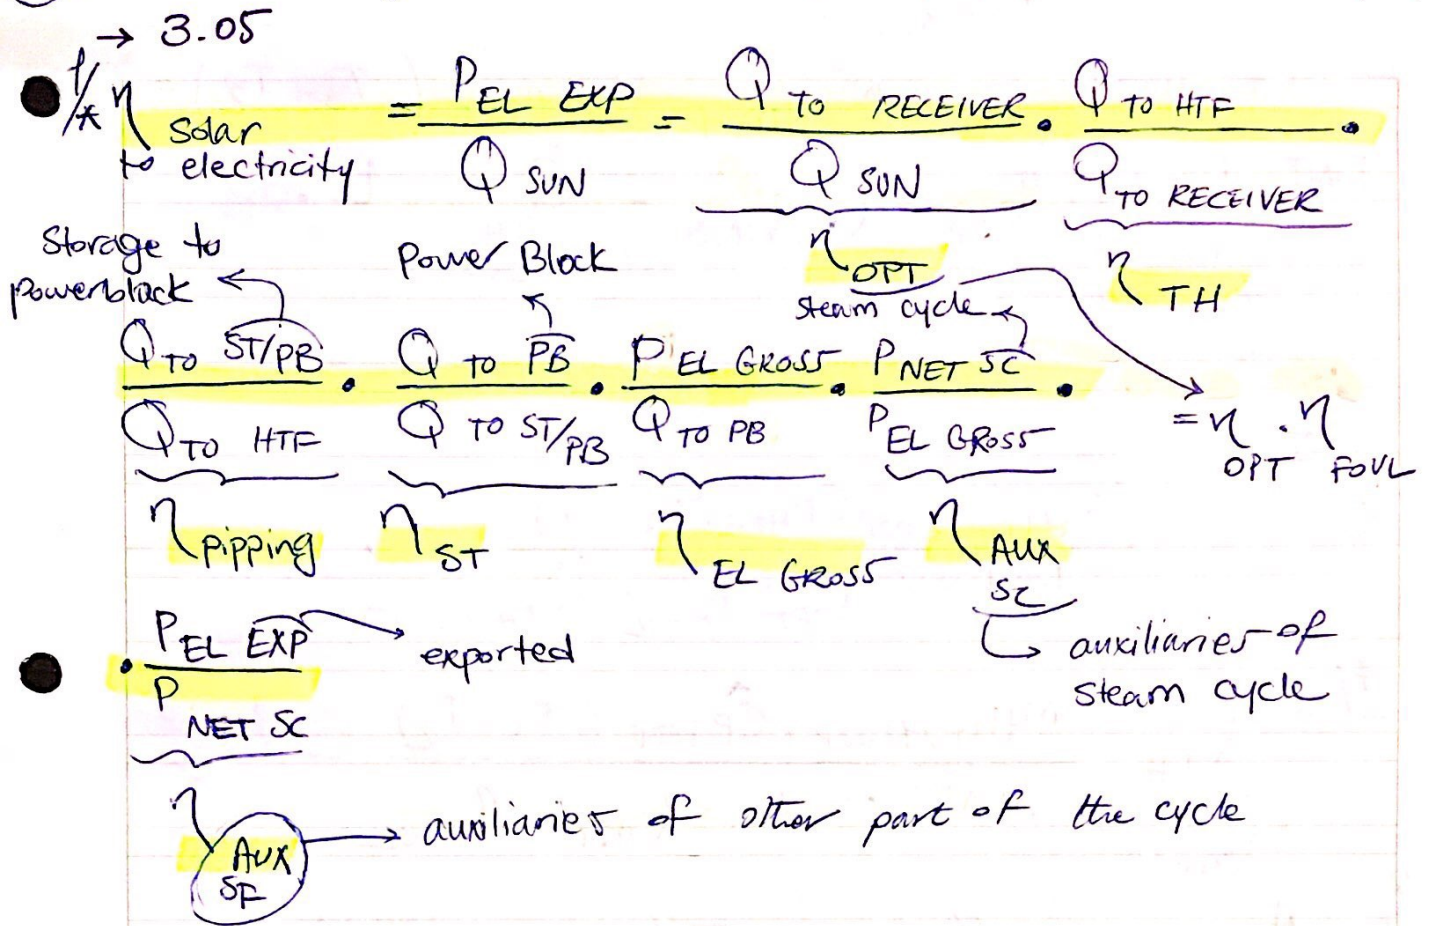 → 3.05
η solar to electricity = P EL EXP / Q SUN = Q TO RECEIVER / Q SUN · Q TO HTF / Q TO RECEIVER ·
η OPT
η TH
Storage to powerblock
Power Block
steam cycle
Q TO ST/PB / Q TO HTF · Q TO PB / Q TO ST/PB · P EL GROSS / Q TO PB · P NET SC / P EL GROSS ·
= η OPT · η FOUL
η pipping
η ST
η EL GROSS
η AUX SC
auxiliaries of
steam cycle
· P EL EXP / P NET SC
exported
η AUX SF → auxiliaries of other part of the cycle